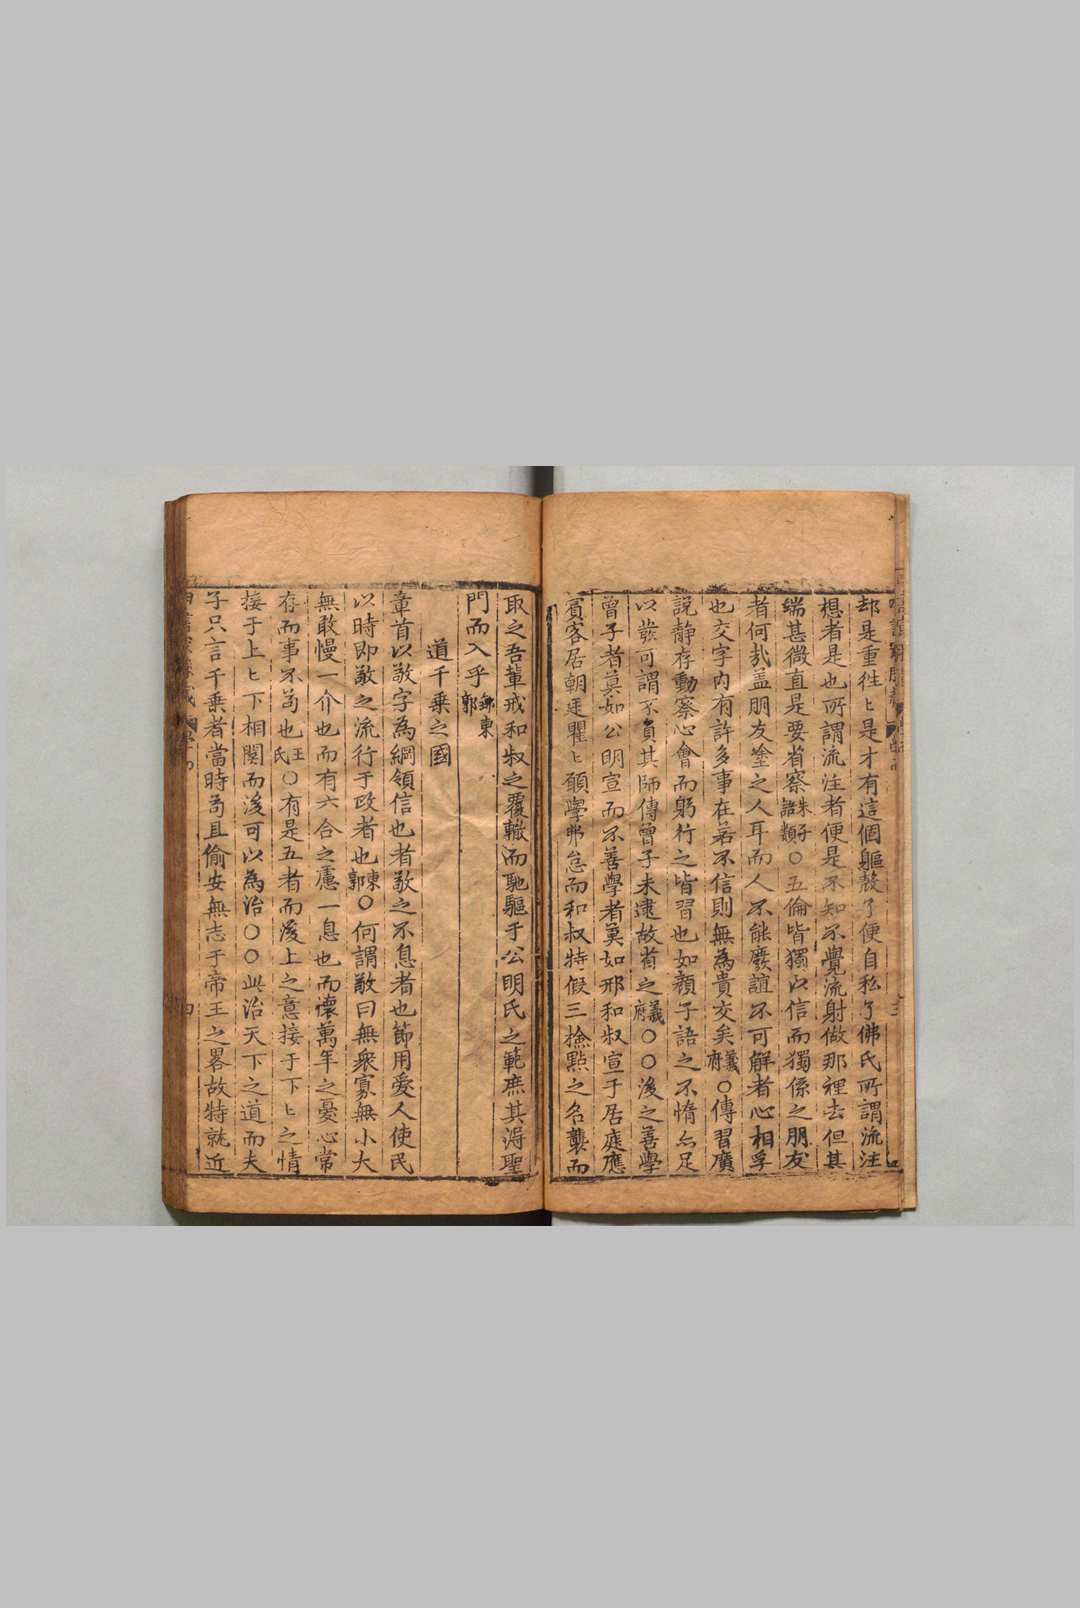 却是重徃〻是才有這個軀殼了便自私了佛氏所謂流注
想者是也所謂流注者便是不知不覺流射做那裡去但其
端甚微直是要省察朱子語類○五倫皆獨以信而獨係之朋友
者何㢤盖朋友塗之人耳而人不能廢誼不可解者心相孚
也交字內有許多事在若不信則無為貴交矣義府○傳習廣
説静存動察心會而躬行之皆習也如顏子語之不惰亦足
以發可謂不負其師傳曾子未逮故省之義府○○後之善學
曾子者莫如公明宣而不善學者莫如邢和叔宣于居庭應
賓客居朝廷瞿〻願學弗怠而和叔特假三撿點之名襲而
取之吾輩戒和叔之覆轍而馳驅于公明氏之範庶其淂聖
門而入乎東郭
道千乗之國
章首以敬字為綱領信也者敬之不息者也節用愛人使民
以時即敬之流行于政者也東郭○何謂敬曰無衆寡無小大
無敢慢一介也而有六合之慮一息也而懷萬年之憂心常
存而事不苟也王氏○有是五者而後上之意接于下〻之情
接于上〻下相関而後可以為治○○此治天下之道而夫
子只言千乗者當時苟且偷安無志于帝王之畧故特就近